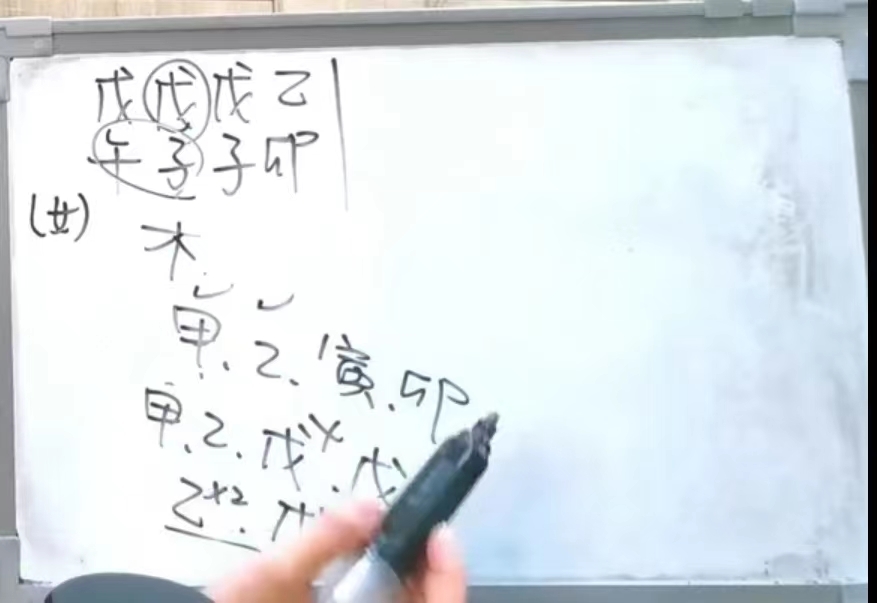 戊戊戊乙
午子子卯
(廿)
木
甲、乙、寅、卯
甲、乙、戊×、戊
乙×2、